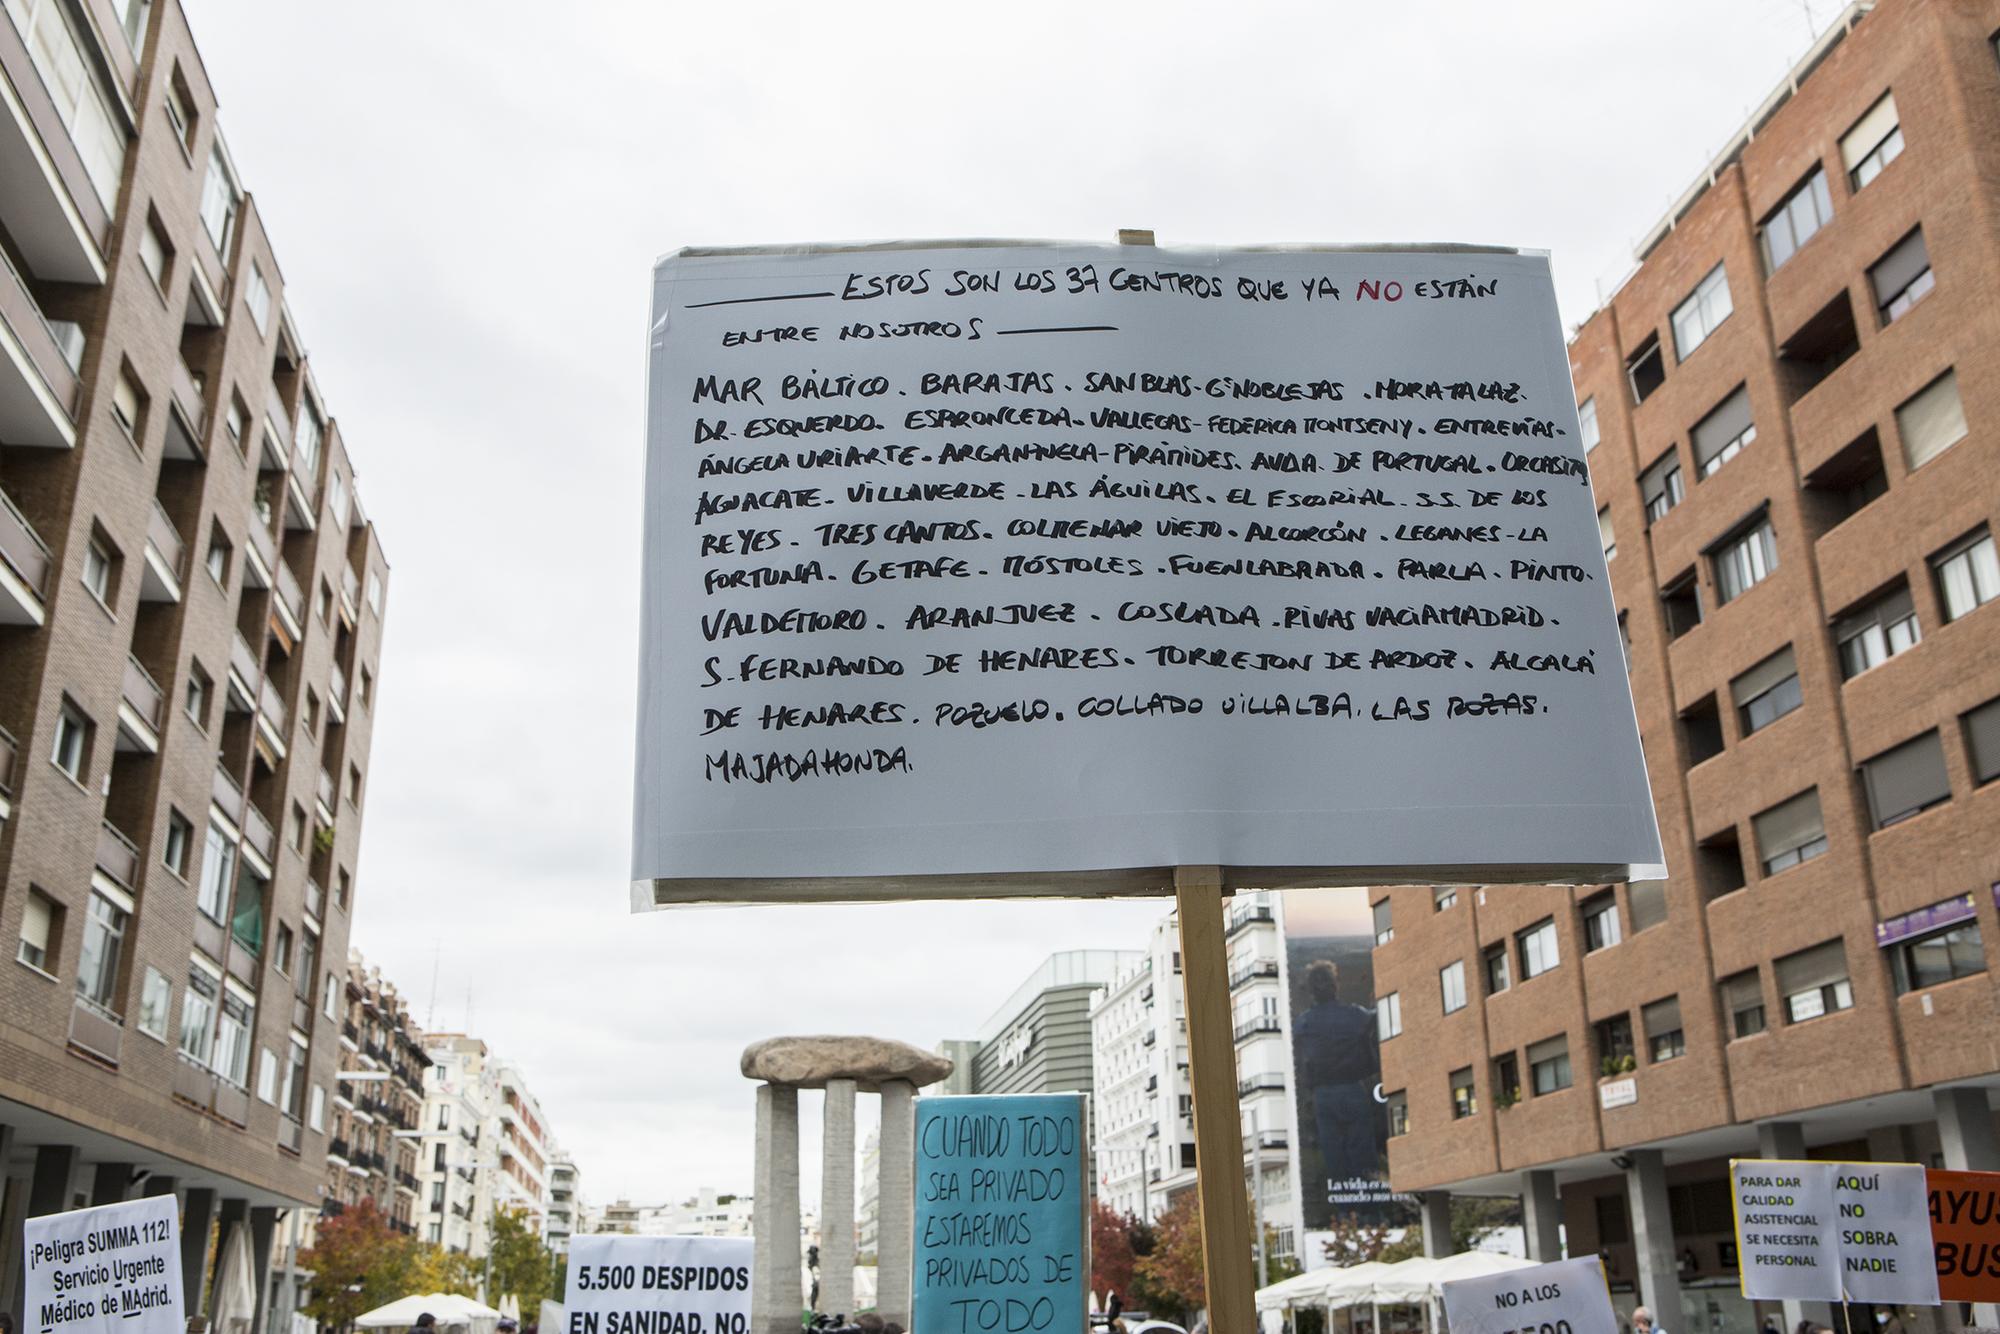 ESTOS SON LOS 37 CENTROS QUE YA NO ESTÁN
ENTRE NOSOTROS
MAR BÁLTICO. BARAJAS. SAN BLAS-Gª NOBLEJAS. MORATALAZ.
DR. ESQUERDO. ESPRONCEDA. VALLECAS-FEDÉRICA MONTSENY. ENTREVÍAS-
ÁNGELA URIARTE. ARGANZUELA-PIRÁMIDES. AVDA. DE PORTUGAL. ORCASITAS
AGUACATE. VILLAVERDE. LAS ÁGUILAS. EL ESCORIAL. S.S. DE LOS
REYES. TRES CANTOS. COLMENAR VIEJO. ALCORCÓN. LEGANES-LA
FORTUNA. GETAFE. MÓSTOLES. FUENLABRADA. PARLA. PINTO.
VALDEMORO. ARANJUEZ. COSLADA. RIVAS VACIAMADRID.
S. FERNANDO DE HENARES. TORREJON DE ARDOZ. ALCALÁ
DE HENARES. POZUELO. COLLADO VILLALBA. LAS ROZAS.
MAJADAHONDA.
¡Peligra SUMMA 112!
Servicio Urgente
Médico de MAdrid.
5.500 DESPIDOS
EN SANIDAD. NO.
CUANDO TODO
SEA PRIVADO
ESTAREMOS
PRIVADOS DE
TODO
La vida es
cuando
NO A LOS
PARA DAR
CALIDAD
ASISTENCIAL
SE NECESITA
PERSONAL
AQUÍ
NO
SOBRA
NADIE
AYUS
BUS